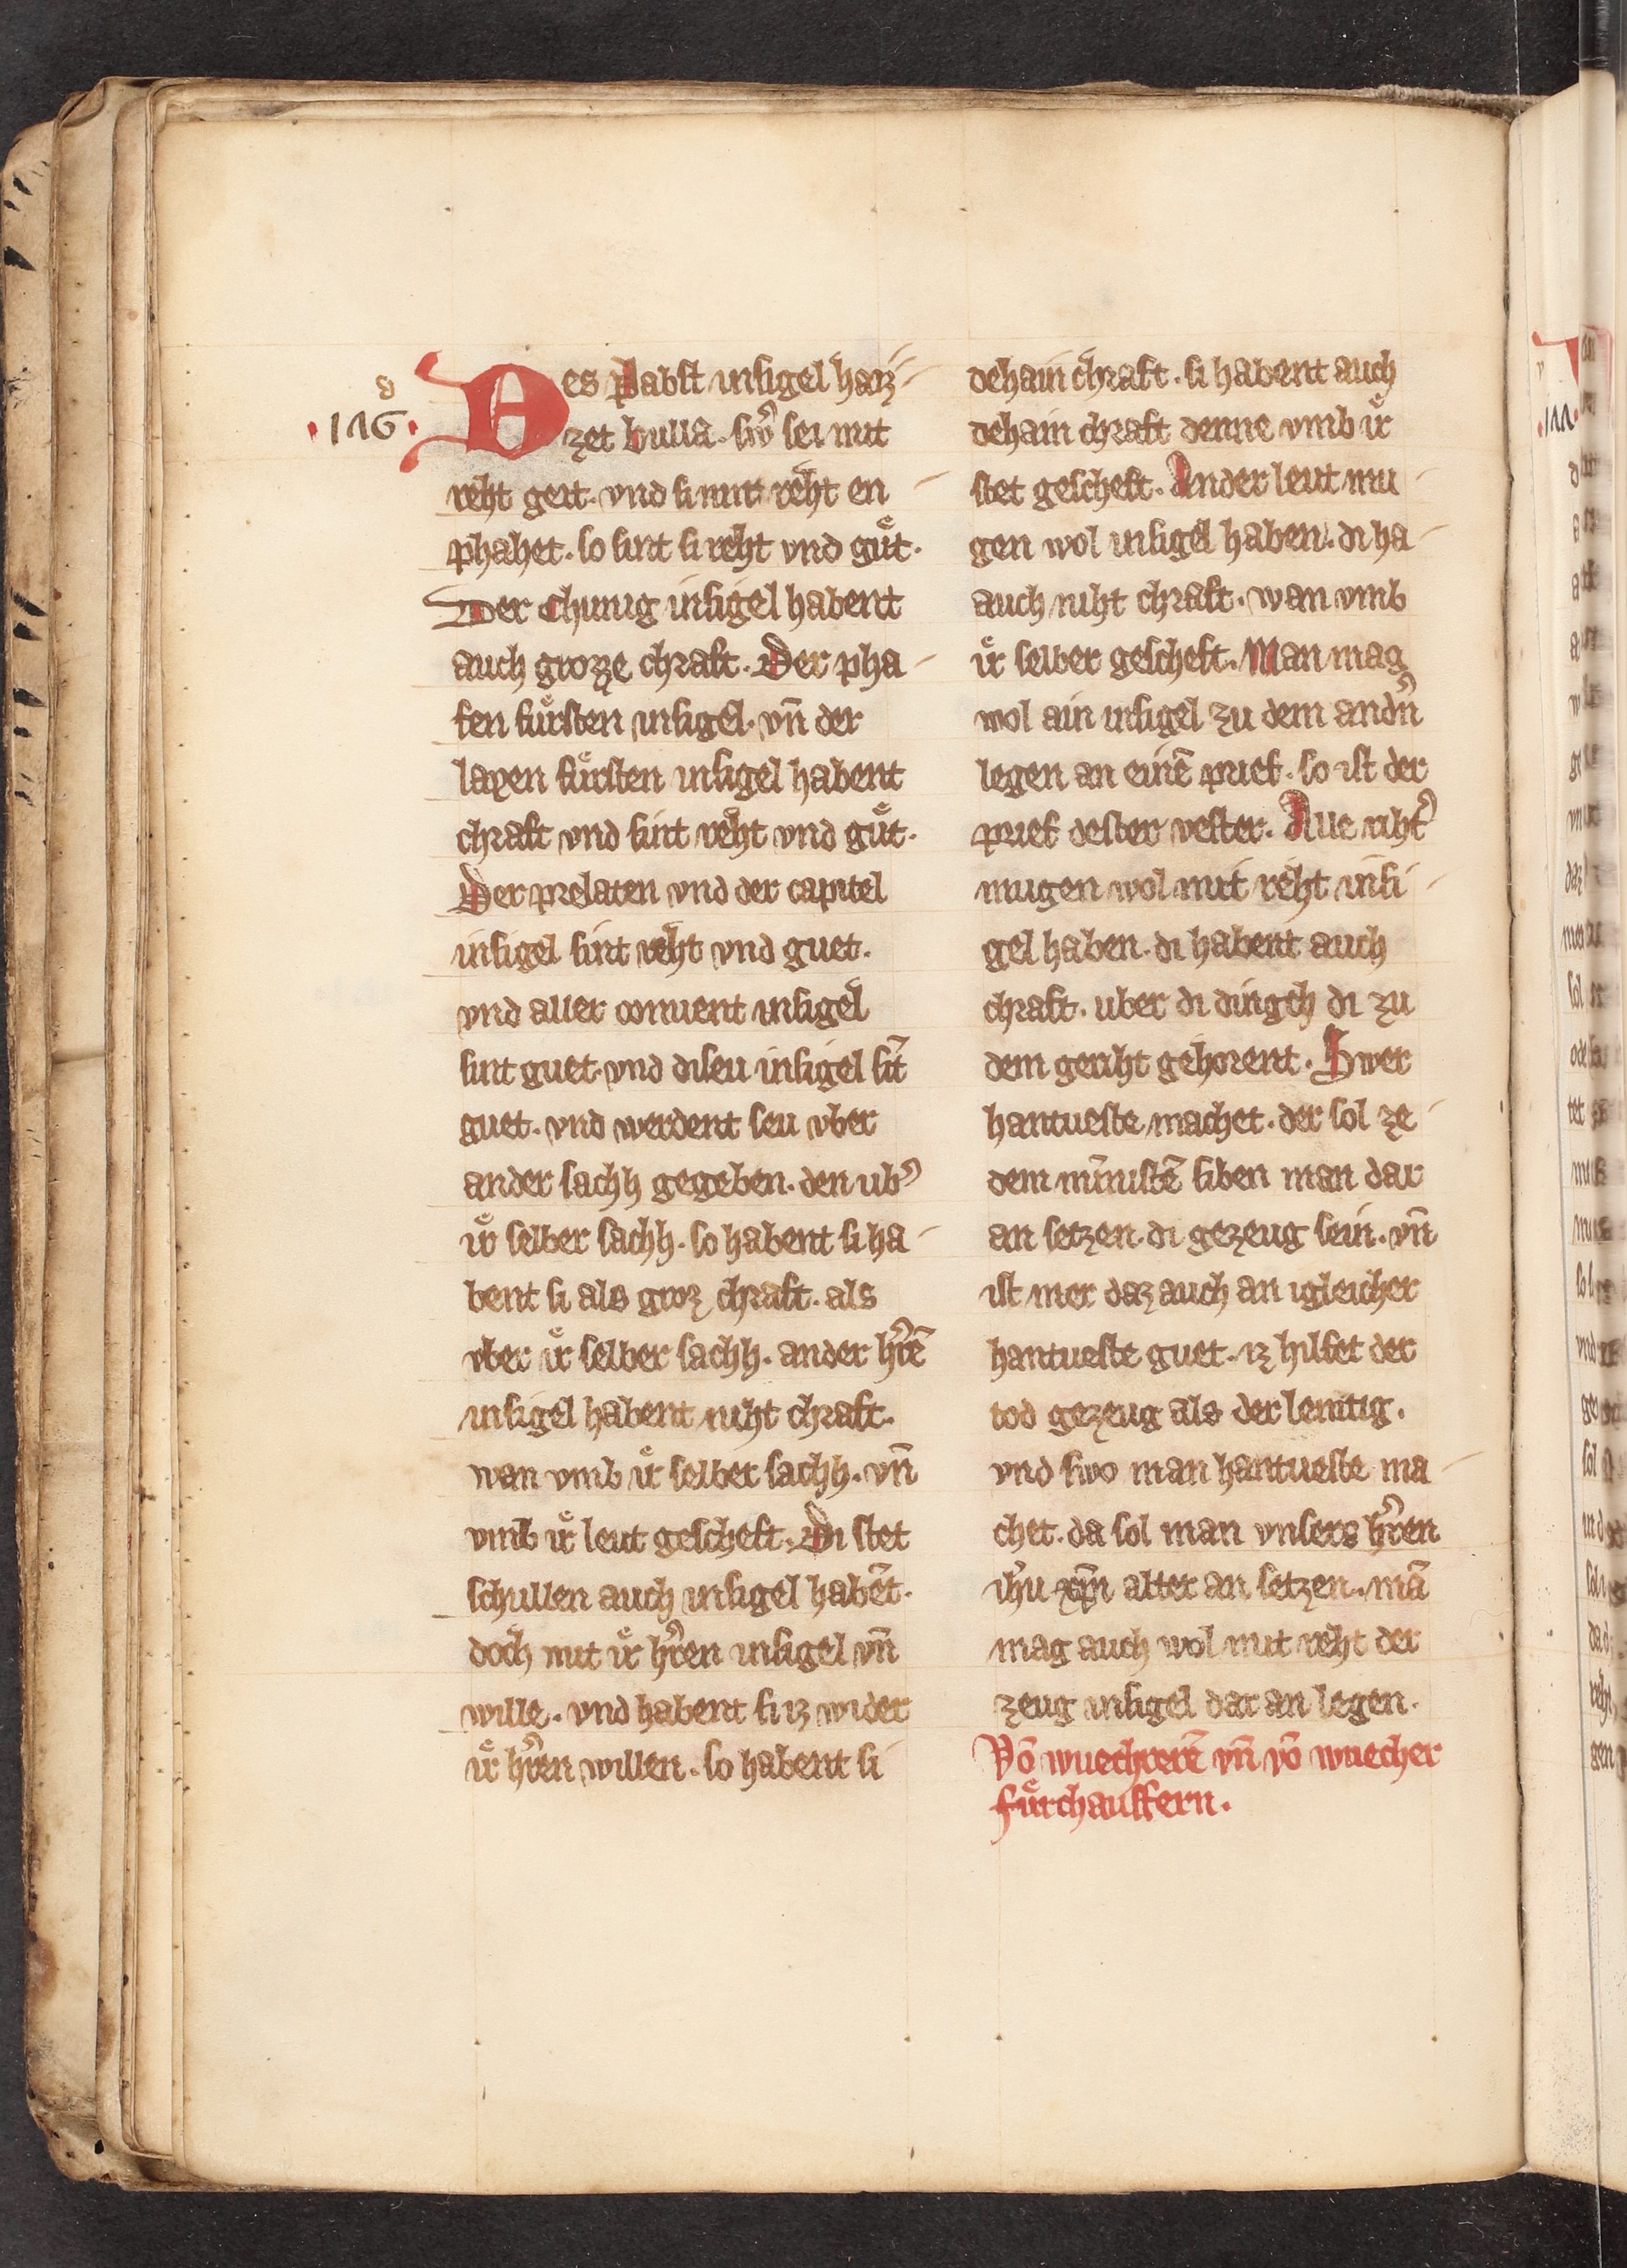 d
·116·
Des Pabst insigel haiz-
zet bulla. swͦ sei mit
reht geit. vnd si mit reht en-
phahet. so sint si reht vnd guͤt.
Der Chunig insigel habent
auch grozze chraft. Der pha-
fen fuͤrsten insigel. vn̄ der
layen fuͤrsten insigel habent
chraft vnd sint reht vnd guͤt.
Der prelaten vnd der capitel
insigel sint reht vnd guet.
vnd aller conuent insigel
sint guet. vnd diseu insigel sīt
guet. vnd werdent seu vber
ander sachh gegeben. den ub͛
ir selber sachh. so habent si ha-
bent si als groz chraft. als
vber iͤr selber sachh. ander h͛rē
insigel habent niht chraft.
wan vmb iͤr selber sachh. vn̄
vmb iͤr leut gescheft. Di stet
schullen auch insigel habēt.
doch mit iͤr h͛ren insigel vn̄
wille. vnd habent si iz wider
iͤr h͛ren willen. so habent si
dehain chraft. si habent auch
dehain chraft denne vmb iͤr
stet gescheft. Ander leut mu-
gen wol insigel haben. di ha-
auch niht chraft. wan vmb
iͤr selber gescheft. Man mag
wol ain insigel zu dem and͛n
legen an einē prief. so ist der
prief dester vester. Alle riht͛
mugen wol mit reht insi-
gel haben. di habent auch
chraft. uber di dingch di zu
dem geriht gehorent. Swer
hantueste machet. der sol ze-
dem minnistē siben man dar
an setzen. di gezeug sein. vn̄
ist mer daz auch an igleicher
hantueste guet. iz hilfet der
tod gezeug als der lentig.
vnd swo man hantueste ma-
chet. da sol man vnsers h͛ren
ih̄u xp̄m alter an setzen. mā
mag auch wol mit reht der
zeug insigel dar an legen.
Vō wuechrerē vn̄ vō wuecher
fuͤrchauffern.